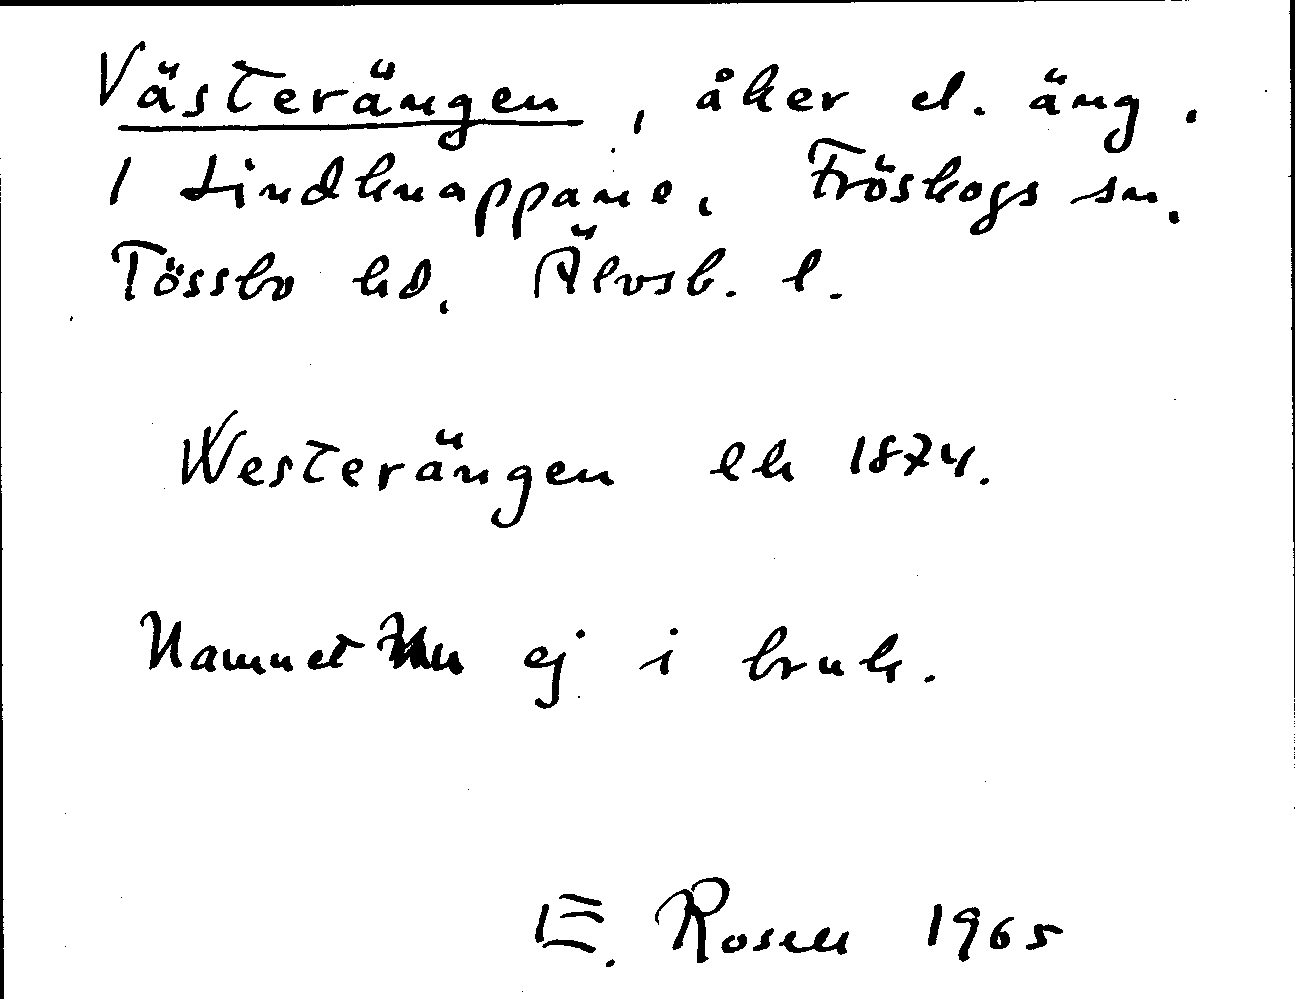 Västerängen, åker el. äng.
1 Lindknappane, Fröskogs sn.
Tössbo hd, Älvsb. l.
Westerängen lh 1874.
Namnet nu ej i bruk.
E. Rosell 1965